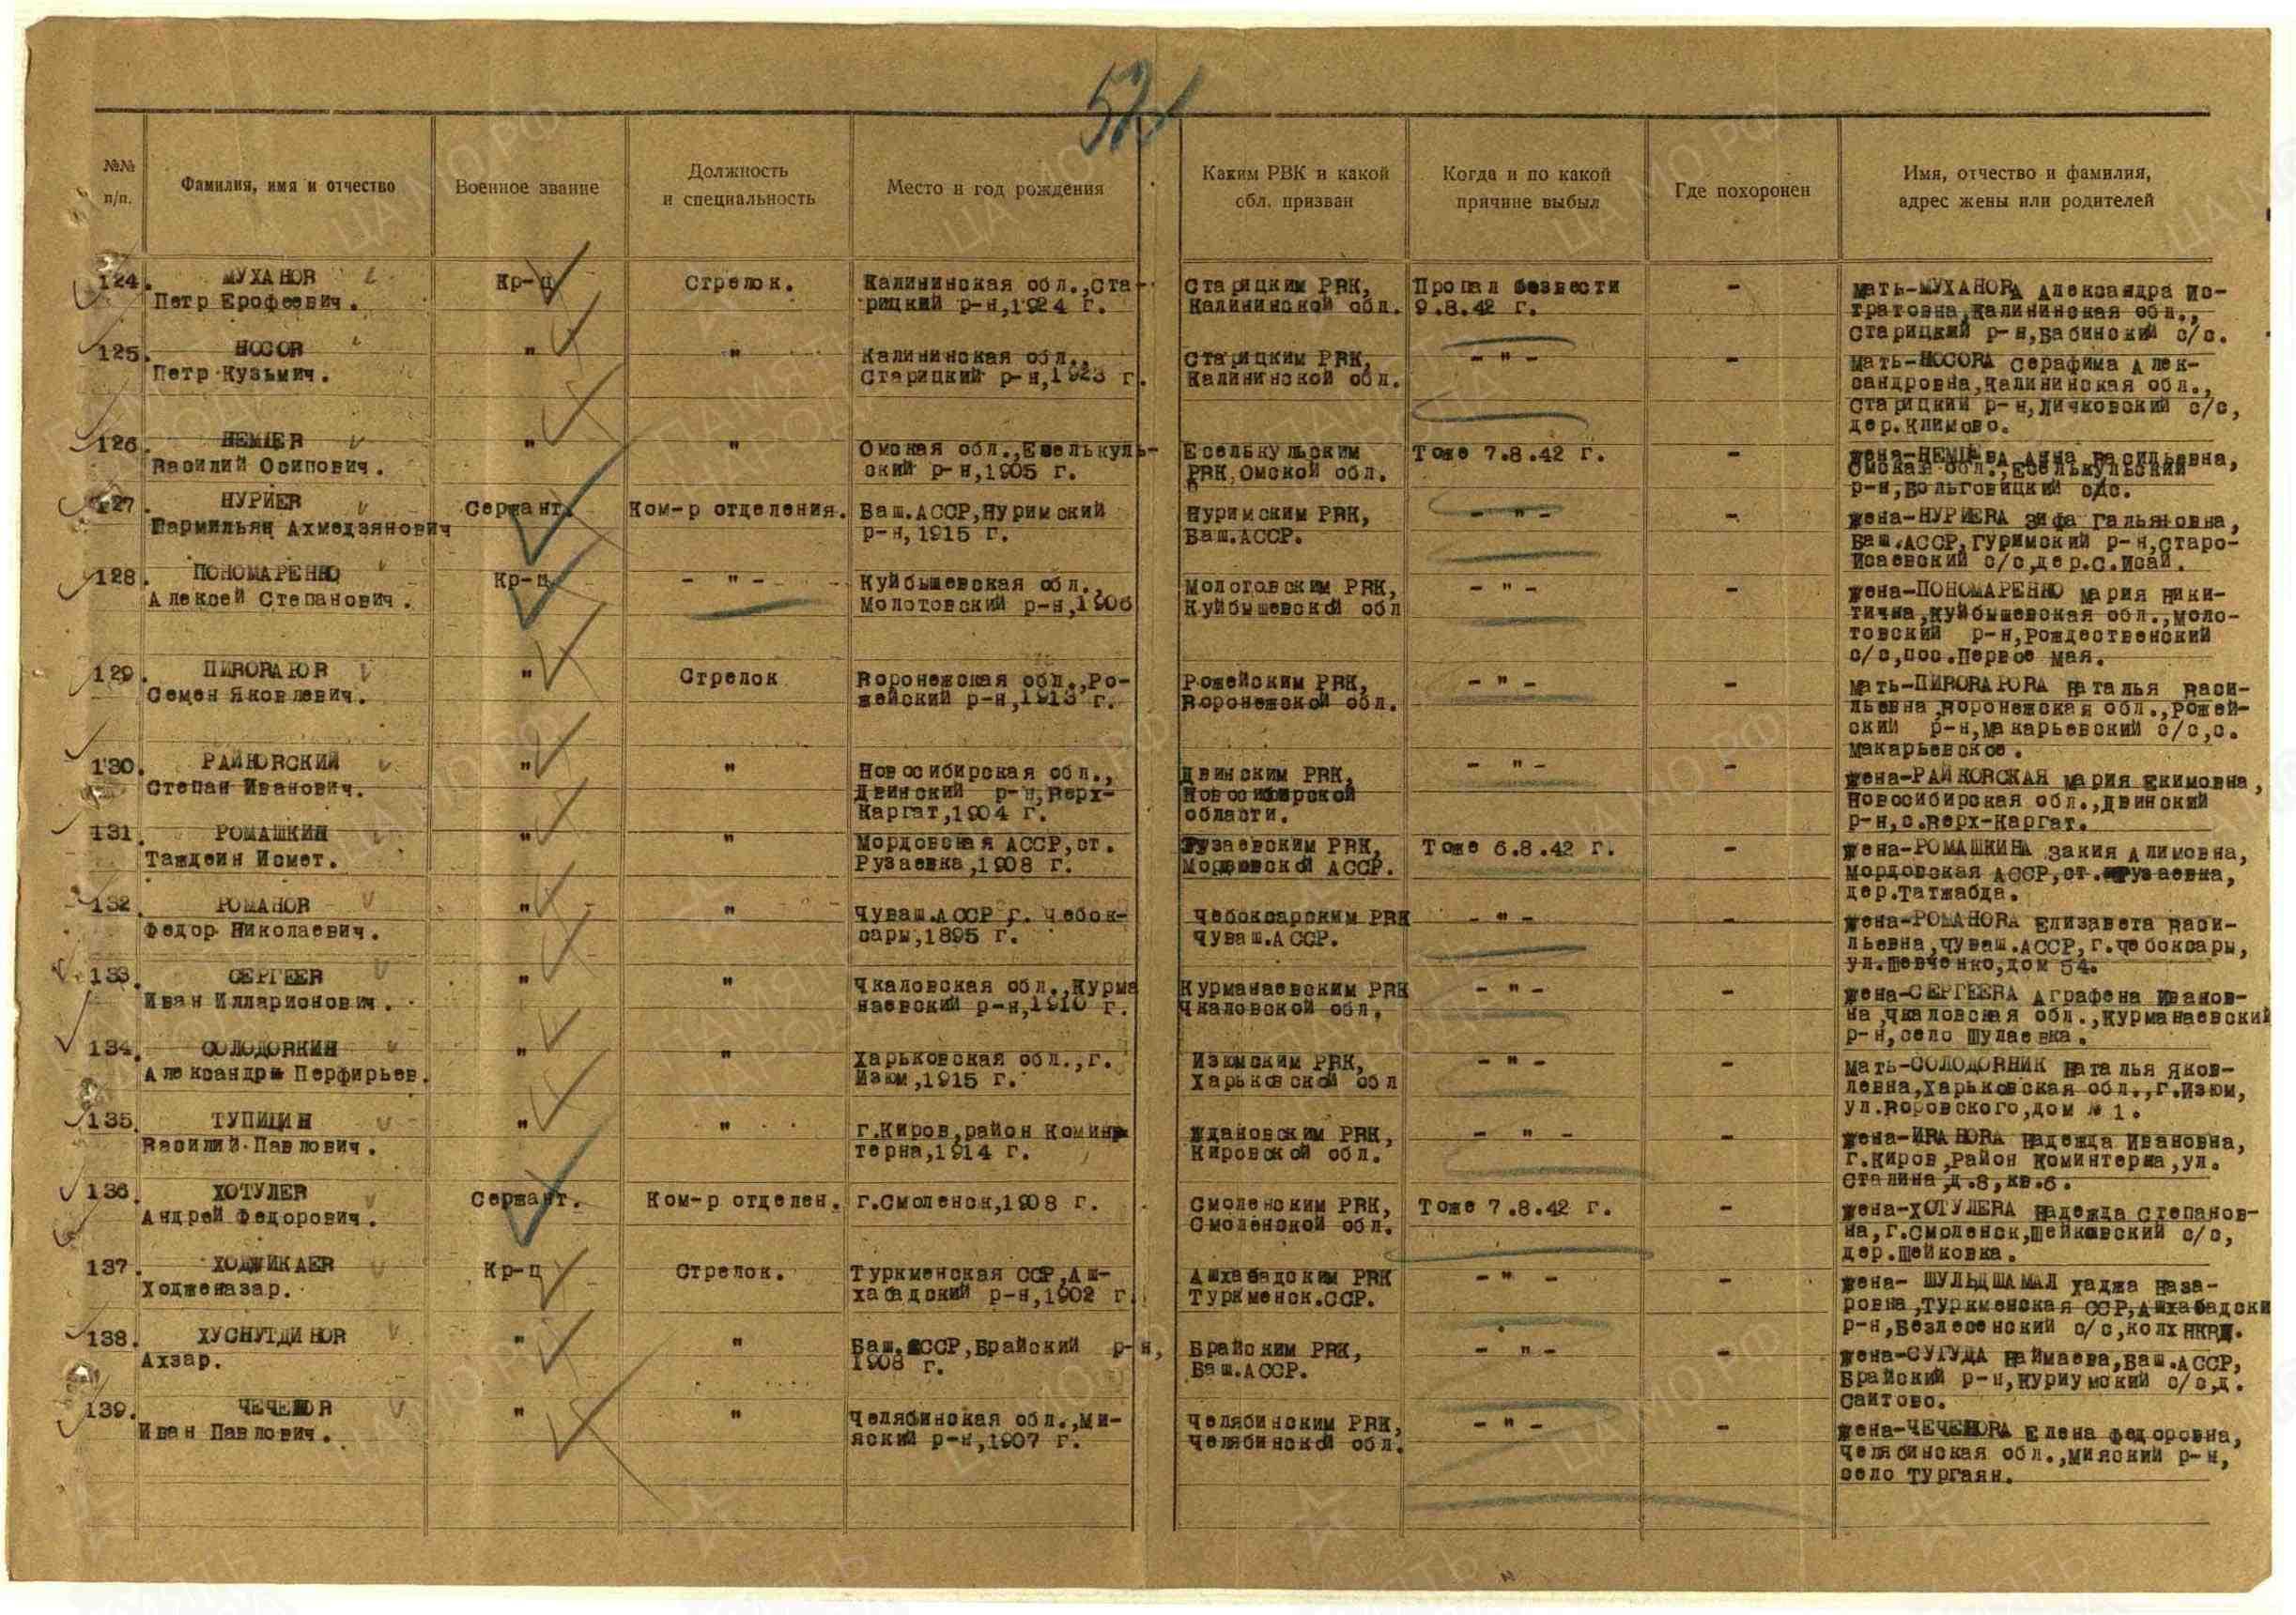 52
№№
п/п.
Фамилия, имя и отчество
Военное звание
Должность
и специальность
Место и год рождения
Каким РВК и какой
обл. призван
Когда и по какой
причине выбыл
Где похоронен
Имя, отчество и фамилия,
адрес жены или родителей
124. МУХАНОВ
Петр Ерофеевич.
Кр-ц
Стрелок.
Калининская обл.,Ста-
рицкий р-н,1924 г.
Старицким РВК,
Калининской обл.
Пропал безвести
9.8.42 г.
-
мать-МУХАНОВА Александра Ис-
тратовна,Калининская обл.,
Старицкий р-н,Бабинский с/с.
125. НОСОВ
Петр Кузьмич.
"
"
Калининская обл.,
Старицкий р-н,1923 г.
Старицким РВК,
Калининской обл.
- " -
-
мать-НОСОВА Серафима Алек-
сандровна,Калининская обл.,
Старицкий р-н,Личковский с/с,
дер.Климово.
126. НЕМЦЕВ
Василий Осипович.
"
"
Омская обл.,Есельку­ль-
ский р-н,1905 г.
Есельку­льским
РВК,Омской обл.
Тоже 7.8.42 г.
-
жена-НЕМЦЕВА Анна Васильевна,
Омская обл.,Есельку­льский
р-н,Вольговицкий с/с.
127. НУРИЕВ
Пармильян Ахмедзянович
Сержант.
Ком-р отделения.
Баш.АССР,Нуримский
р-н,1915 г.
Нуримским РВК,
Баш.АССР.
- " -
-
жена-НУРИЕВА Зифа Гальяновна,
Баш.АССР,Гуримский р-н,Старо-
Исаевский с/с,дер.С.Исай.
128. ПОНОМАРЕНКО
Алексей Степанович.
Кр-ц
- " -
Куйбышевская обл.,
Молотовский р-н,1906
Молотовским РВК,
Куйбышевской обл
- " -
-
жена-ПОНОМАРЕНКО Мария Ники-
тична,Куйбышевская обл.,Моло-
товский р-н,Рождественский
с/с,пос.Первое мая.
129. ПИВОВАРОВ
Семен Яковлевич.
"
Стрелок
Воронежская обл.,Ро-
жейский р-н,1913 г.
Рожейским РВК,
Воронежской обл.
- " -
-
мать-ПИВОВАРОВА Наталья Васи-
льевна,Воронежская обл.,Рожей-
ский р-н,Макарьевский с/с,с.
Макарьевское.
130. РАЙКОВСКИЙ
Степан Иванович.
"
"
Новосибирская обл.,
Двинский р-н,Верх-
Каргат,1904 г.
Двинским РВК,
Новосибирской
области.
- " -
-
жена-РАЙКОВСКАЯ Мария Екимовна,
Новосибирская обл.,Двинский
р-н,с.Верх-Каргат.
131. РОМАШКИН
Таждеин Исмет.
"
"
Мордовская АССР,ст.
Рузаевка,1908 г.
Рузаевским РВК,
Мордовской АССР.
Тоже 6.8.42 г.
-
жена-РОМАШКИНА Закия Алимовна,
Мордовская АССР,ст.Рузаевка,
дер.Татжабда.
132. РОМАНОВ
Федор Николаевич.
"
"
Чуваш.АССР г. Чебок-
сары,1895 г.
Чебоксарским РВК
Чуваш.АССР.
- " -
-
жена-РОМАНОВА Елизавета Васи-
льевна,Чуваш.АССР,г.Чебоксары,
ул.Шевченко,дом 54.
133. СЕРГЕЕВ
Иван Илларионович.
"
"
Чкаловская обл.,Курма
наевский р-н,1910 г.
Курманаевским РВК
Чкаловской обл.
- " -
-
жена-СЕРГЕЕВА Аграфена Иванов-
на,Чкаловская обл.,Курманаевский
р-н,село Шулаевка.
134. СОЛОДОВНИК
Александр Перфирьев.
"
"
Харьковская обл.,г.
Изюм,1915 г.
Изюмским РВК,
Харьковской обл
- " -
-
мать-СОЛОДОВНИК Наталья Яков-
левна,Харьковская обл.,г.Изюм,
ул.Воровского,дом № 1.
135. ТУПИЦИН
Василий Павлович.
"
"
г.Киров,район Комин-
терна,1914 г.
Ждановским РВК,
Кировской обл.
- " -
-
жена-ИВАНОВА Надежда Ивановна,
г.Киров,Район Коминтерна,ул.
Сталина,д.8,кв.6.
136. ХОТУЛЕВ
Андрей Федорович.
Сержант.
Ком-р отделен.
г.Смоленск,1908 г.
Смоленским РВК,
Смоленской обл.
Тоже 7.8.42 г.
-
жена-ХОТУЛЕВА Надежда Степанов-
на,г.Смоленск,Шейковский с/с,
дер.Шейковка.
137. ХОДЖИКАЕВ
Ходженазар.
Кр-ц
Стрелок.
Туркменская ССР,Аш-
хабадский р-н,1902 г.
Ашхабадским РВК
Туркменск.ССР.
- " -
-
жена- ШУЛЬДШАМАЛ Хаджа Наза-
ровна,Туркменская ССР,Ашхабадски
р-н,Безлесенский с/с,колх НКВД.
138. ХУСНУТДИНОВ
Ахзар.
"
"
Баш.АССР,Брайский р-н,
1908 г.
Брайским РВК,
Баш.АССР.
- " -
-
жена-СУГУДА Наймаева,Баш.АССР,
Брайский р-н,Куриумский с/с,д.
Саитово.
139. ЧЕЧЕНОВ
Иван Павлович.
"
"
Челябинская обл.,Ми-
яский р-н,1907 г.
Челябинским РВК,
Челябинской обл.
- " -
-
жена-ЧЕЧЕНОВА Елена Федоровна,
Челябинская обл.,Мияский р-н,
село Тургаян.